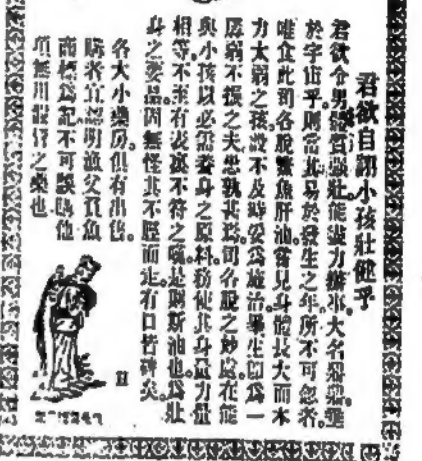 君欲自詡小孩壯健乎
君欲令男體質強壯能盡力辦事大名鼎鼎垂
於宇宙乎則當其易於發生之年所不可忽者
唯食此司各脫鱉魚肝油嘗見身體長大而本
力太弱之孩設不及時妥為施治畢生卽為一
孱弱不振之夫患孰甚焉司各脫之妙處在能
與小孩以必需養身之原料務使其身量力量
相等不至有表裏不符之嘆是則斯油也為壯
身之妥品固無怪其不脛而走有口皆碑矣
各大小藥房俱有出售
購者宜認明漁父負魚
商標為記不可誤購他
項無用假冒之藥也